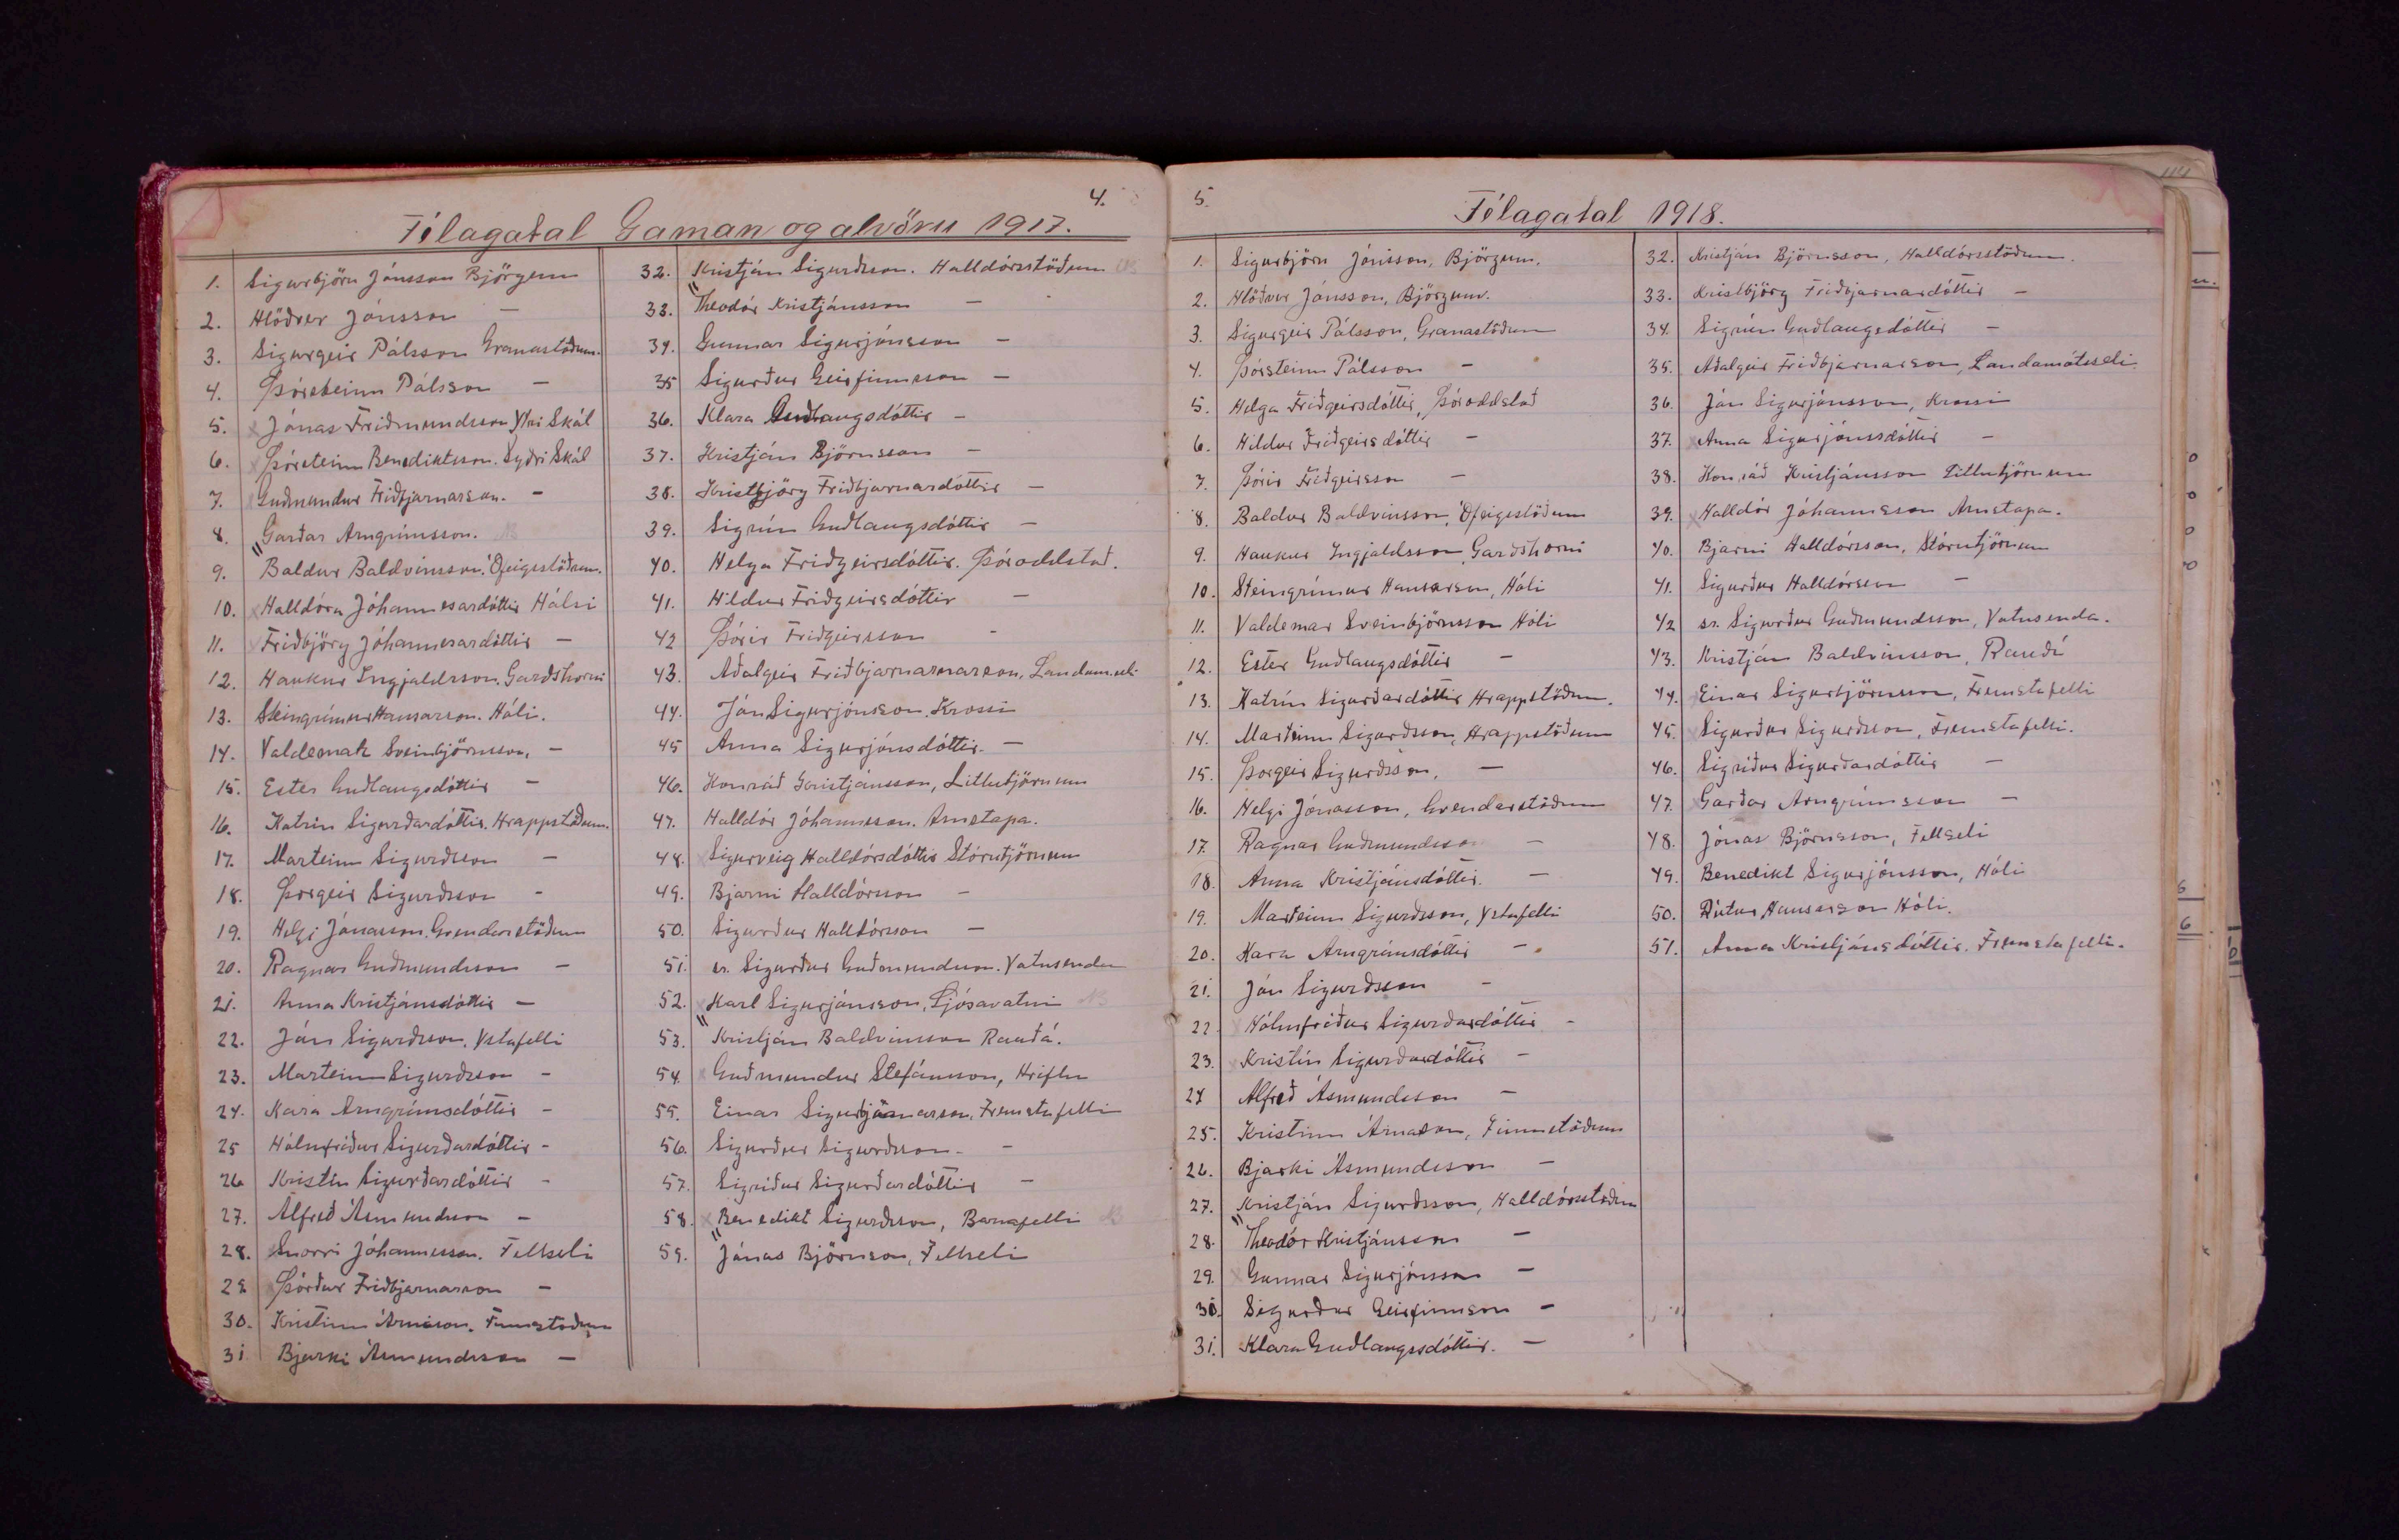 4.
Félagatal Gaman og alvöru 1917.
1. Sigurbjörn Jónsson Björgum
2. Hlöðver Jónsson —
3. Sigurgeir Pálsson Granastöðum.
4. Þórsteinn Pálsson —
5. x Jónas Friðmundsson Ytri Skál
6. x Þórsteinn Benediktsson. Syðri Skál
7. x Guðmundur Friðbjarnarson. —
8. " Garðar Arngrímsson.
9. Baldur Baldvinsson. Ófeigsstöðum.
10. x Halldóra Jóhannesardóttir Hálsi
11. x Friðbjörg Jóhannesardóttir —
12. Haukur Ingjaldsson. Garðshorni
13. Steingrímur Hansarson. Hóli.
14. Valdemar Sveinbjörnsson, —
15. Ester Guðlaugsdóttir —
16. Katrín Sigurðardóttir. Hrappstöðum.
17. Marteinn Sigurðsson —
18. Þorgeir Sigurðsson -
19. Helgi Jónasson. Gvendarstöðum
20. Ragnar Guðmundsson —
21. Anna Kristjánsdóttir —
22. Jón Sigurðsson. Ystafelli
23. Marteinn Sigurðsson -
24. Kara Arngrímsdóttir -
25 Hólmfríður Sigurðardóttir -
26 Kristín Sigurðardóttir -
27. Alfreð Ásmundsson —
28. Snorri Jóhannesson. Fellseli
29. x Þórður Friðbjarnarson —
30. Kristinn Árnason. Finnstöðum
31 Bjarki Ásmundsson —
32. Kristján Sigurðsson. Halldórsstöðum
33. " Theodór Kristjánsson —
34. Gunnar Sigurjónsson —
35 Sigurður Geirfinnsson —
36. Klara Guðlaugsdóttir —
37. Kristján Björnsson —
38. Kristbjörg Friðbjarnardóttir —
39. Sigrún Guðlaugsdóttir —
40. Helga Friðgeirsdóttir. Þóroddstað.
41. Hildur Friðgeirsdóttir —
42 Þórir Friðgeirsson -
43. Aðalgeir Friðbjarnarnarson, Landam.seli
44. Jón Sigurjónsson. Krossi
45 Anna Sigurjónsdóttir. —
46. Konráð Kristjánsson, Litlutjörnum
47. Halldór Jóhannesson. Arnstapa.
48. x Sigurveig Halldórsdóttir Stórutjörnum
49. Bjarni Halldórsson —
50. Sigurður Halldórsson —
51. sr. Sigurður Guðmundsson. Vatnsenda
52. x Karl Sigurjónsson, Ljósavatni
53. " Kristján Baldvinsson Rauðá.
54. x Guðmundur Stefánsson, Hriflu
55. Einar Sigurbjörnarson. Fremstafelli
56. Sigurður Sigurðsson. —
57. Sigríður Sigurðardóttir —
58. x Benedikt Sigurðsson, Barnafelli
59. " Jónas Björnsson, Fellseli
5.
Félagatal 1918.
1. Sigurbjörn Jónsson, Björgum.
2. Hlöðver Jónsson, Björgum.
3. Sigurgeir Pálsson, Granastöðum
4. Þórsteinn Pálsson —
5. Helga Friðgeirsdóttir, Þóroddstað
6. Hildur Friðgeirsdóttir —
7. Þórir Friðgeirsson —
8. Baldur Baldvinsson, Ófeigsstöðum
9. Haukur Ingjaldsson, Garðshorni
10. Steingrímur Hansarson, Hóli
11. Valdemar Sveinbjörnsson Hóli
12. Ester Guðlaugsdóttir —
13. Katrín Sigurðardóttir Hrappstöðum.
14. Marteinn Sigurðsson, Hrappstöðum
15. Þorgeir Sigurðsson, —
16. Helgi Jónasson, Gvendarstöðum
17. Ragnar Guðmundsson —
18. Anna Kristjánsdóttir. —
19. Marteinn Sigurðsson, Ystafelli
20. Kara Arngrímsdóttir —
21. Jón Sigurðsson -
22. x Hólmfríður Sigurðardóttir -
23. Kristín Sigurðardóttir —
24 Alfreð Ásmundsson —
25. Kristinn Árnason, Finnstöðum
26. Bjarki Ásmundsson —
27. Kristján Sigurðsson, Halldórsstöðum
28. " Theodór Kristjánsson —
29. x Gunnar Sigurjónsson —
30. Sigurður Geirfinnsson —
31. Klara Guðlaugssdóttir. —
32. Kristján Björnsson, Halldórsstöðum.
33. Kristbjörg Friðbjarnardóttir —
34. Sigrún Guðlaugsdóttir —
35. Aðalgeir Friðbjarnarson, Landamótsseli
36. Jón Sigurjónsson, Krossi
37. x Anna Sigurjónssdóttir —
38. Konráð Kristjánsson Litlutjörnum
39. x Halldór Jóhannsson Arnstapa.
40. Bjarni Halldórsson, Stórutjörnum
41. Sigurður Halldórsson —
42 sr. Sigurður Guðmundsson, Vatnsenda.
43. Kristján Baldvinsson, Rauðá
44. x Einar Sigurbjörnsson, Fremstafelli
45. x Sigurður Sigurðsson, Fremstafelli.
46. Sigríður Sigurðardóttir —
47. x Garðar Arngrímsson —
48. Jónas Björnsson, Fellseli
49. Benedikt Sigurjónsson, Hóli
50. Rútur Hansarson Hóli.
51. Anna Kristjánsdóttir. Fremstafelli.